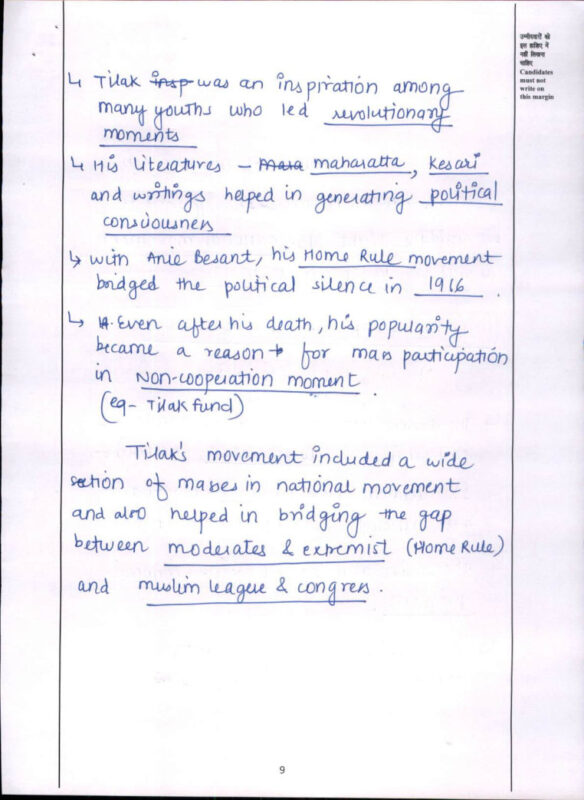 उम्मीदवारों को
इस हाशिए में
नहीं लिखना
चाहिए
Candidates
must not
write on
this margin
↳ Tilak insp was an inspiration among
many youths who led revolutionary
moments
↳ His literatures – Mara maharatta, Kesari
and writings helped in generating political
consciousness
↳ with Anie Besant, his Home Rule movement
bridged the political silence in 1916.
↳ Even after his death, his popularity
became a reason for mass participation
in Non-cooperation moment.
(eg- Tilak fund)
Tilak's movement included a wide
section of masses in national movement
and also helped in bridging the gap
between moderates & extremist (Home Rule)
and muslim league & congress.
9